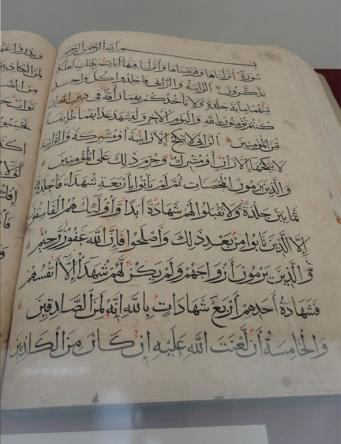 بسم الله الرحمن الرحيم
سورة أنزلناها وفرضناها وأنزلنا فيها آيات بينات لعلكم
تذكرون الزانية والزاني فاجلدوا كل واحد
منهما مائة جلدة ولا تأخذكم بهما رأفة في دين الله إن
كنتم تؤمنون بالله واليوم الآخر وليشهد عذابهما طائفة
من المؤمنين الزاني لا ينكح إلا زانية أو مشركة والزانية
لا ينكحها إلا زان أو مشرك وحرم ذلك على المؤمنين
والذين يرمون المحصنات ثم لم يأتوا بأربعة شهداء فاجلدوهم
ثمانين جلدة ولا تقبلوا لهم شهادة أبدا وأولئك هم الفاسقون
إلا الذين تابوا من بعد ذلك وأصلحوا فإن الله غفور رحيم
والذين يرمون أزواجهم ولم يكن لهم شهداء إلا أنفسهم
فشهادة أحدهم أربع شهادات بالله إنه لمن الصادقين
والخامسة أن لعنت الله عليه إن كان من الكاذبين